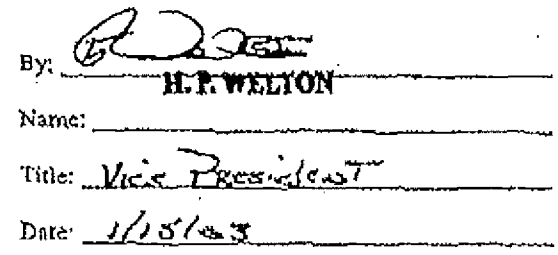 By:
H. P. WELTON
Name:
Title: Vice President
Date: 1/15/03